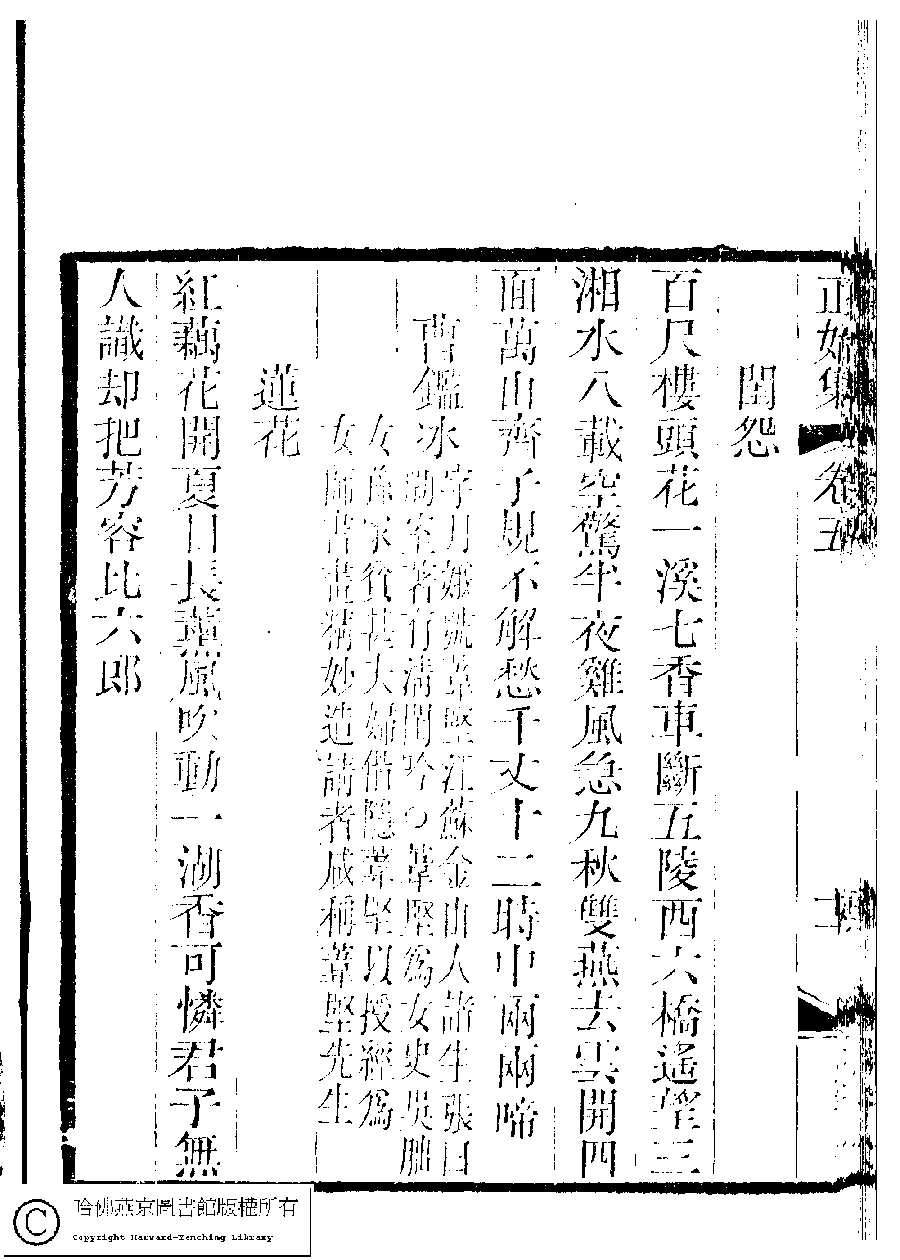 正始集 卷五 二
閨怨
百尺樓頭花一溪七香車斷五陵西六橋遙望三
湘水八載空驚半夜雞風急九秋雙燕去雲開四
面萬山齊子規不解愁千丈十二時中兩兩啼
曹鑑冰
字月娥號葦堅江蘇金山人諸生張曰
瑚室著有清閨吟○葦堅為女史吳朏
女孫家貧甚夫婦偕隱葦堅以授經為
女師書畫精妙造請者咸稱葦堅先生
蓮花
紅藕花開夏日長薰風吹動一湖香可憐君子無
人識却把芳容比六郎
哈佛燕京圖書館版權所有
Copyright Harvard-Yenching Library